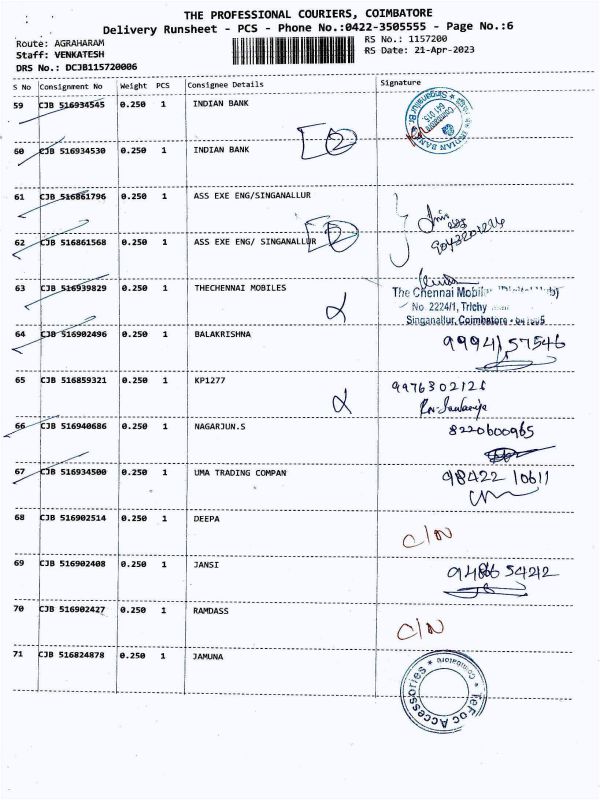 THE PROFESSIONAL COURIERS, COIMBATORE
Delivery Runsheet - PCS - Phone No.:0422-3505555 - Page No.:6
Route: AGRAHARAM
RS No.: 1157200
Staff: VENKATESH
RS Date: 21-Apr-2023
DRS No.: DCJB115720006
S No Consignment No Weight PCS Consignee Details Signature
59 CJB 516934545 0.250 1 INDIAN BANK
60 CJB 516934530 0.250 1 INDIAN BANK
2
61 CJB 516861796 0.250 1 ASS EXE ENG/SINGANALLUR
62 CJB 516861568 0.250 1 ASS EXE ENG/ SINGANALLUR
2
63 CJB 516939829 0.250 1 THECHENNAI MOBILES
The Chennai Mobiles
No 2224/1, Trichy
Singanallur, Coimbatore
64 CJB 516902496 0.250 1 BALAKRISHNA
9994157546
65 CJB 516859321 0.250 1 KP1277
9976302121
66 CJB 516940686 0.250 1 NAGARJUN.S
8220600965
67 CJB 516934500 0.250 1 UMA TRADING COMPAN
98422 10611
68 CJB 516902514 0.250 1 DEEPA
C/N
69 CJB 516902408 0.250 1 JANSI
94866 54242
70 CJB 516902427 0.250 1 RAMDASS
C/N
71 CJB 516824878 0.250 1 JAMUNA
ReFoc Accessories * Coimbatore *